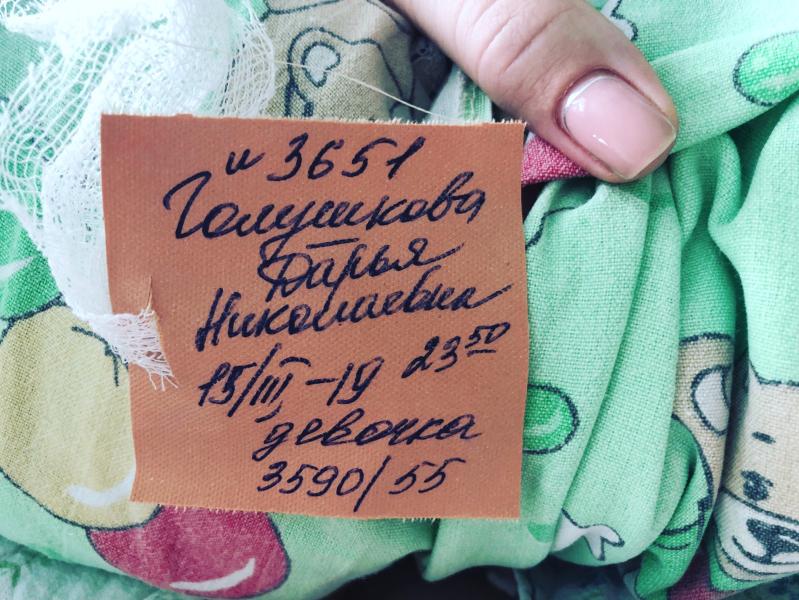 и 3651
Голушкова
Дарья
Николаевна
15/III-19 23⁵⁰
девочка
3590/55